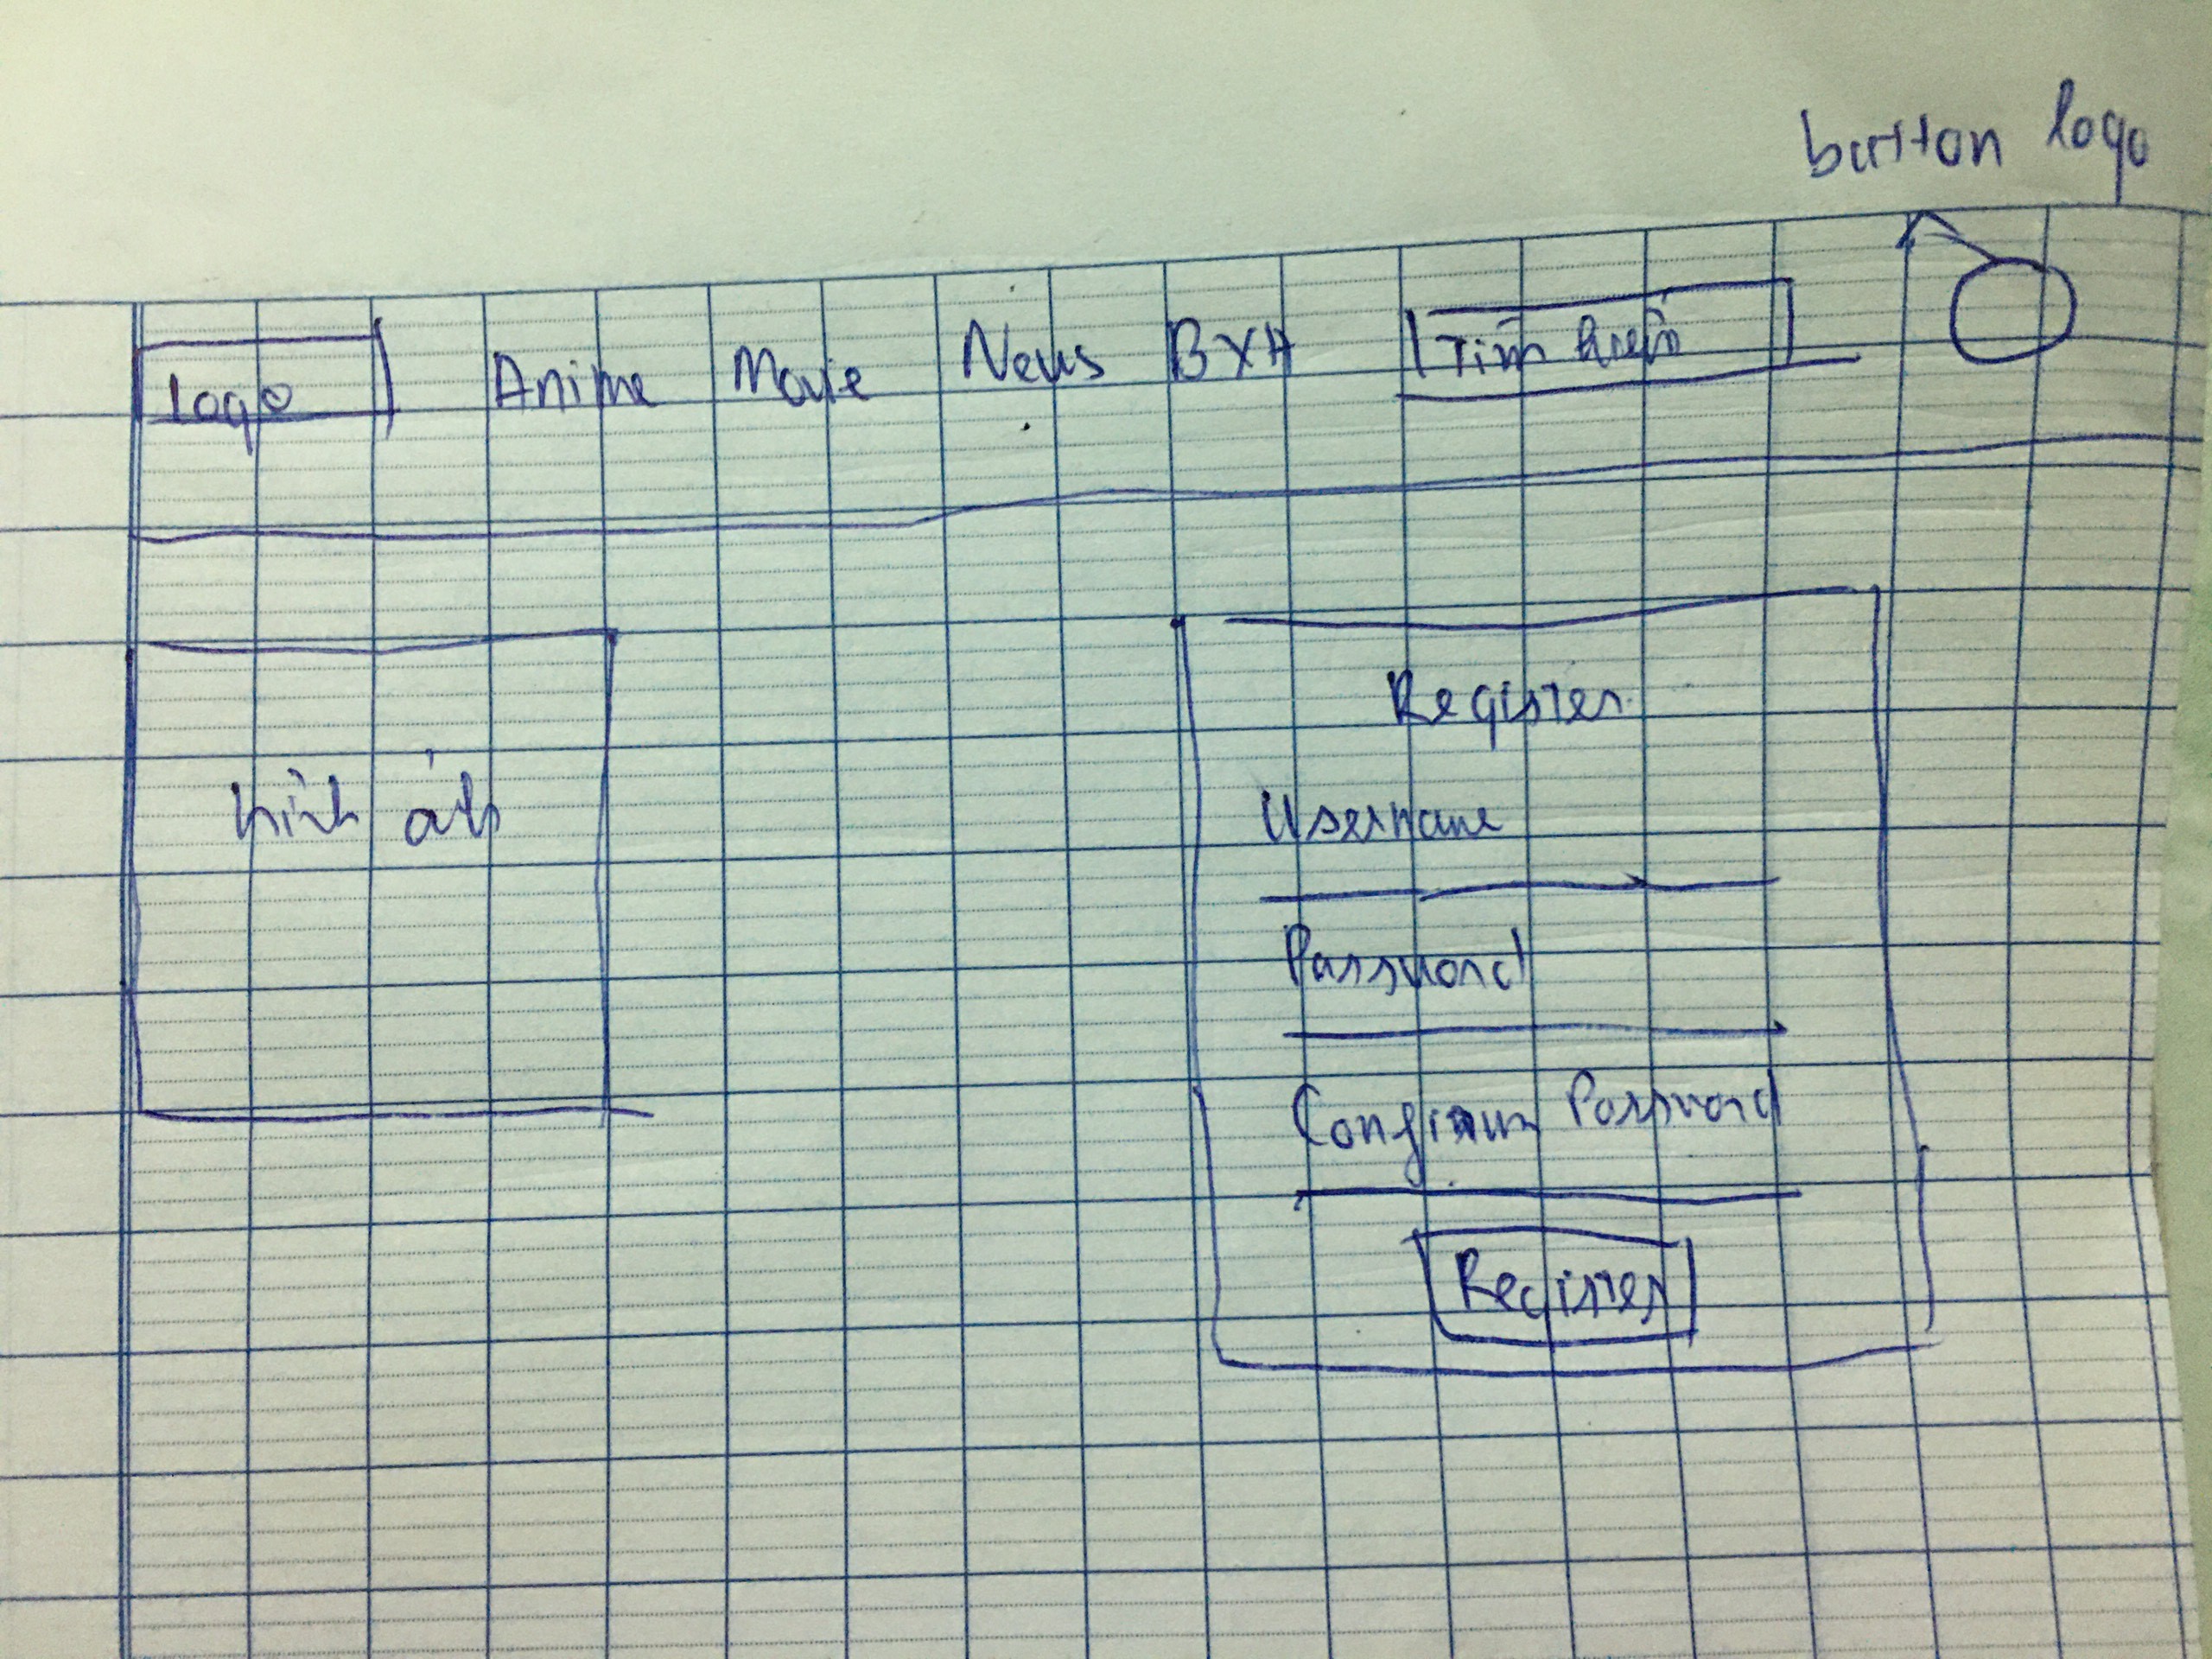 button logo
Logo Anime Movie News BXH Tìm kiếm
Register
Username
hình ảh
Password
Confirm Password
Register